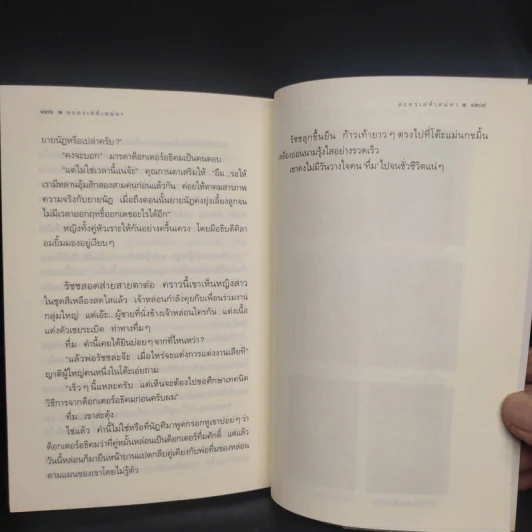 ละครเล่ห์เสน่หา
ยายนัฏหรือเปล่าครับ?"
"คงจะบอก" มารดาด็อกเตอร์อธิคมเป็นคนตอบ
"แต่ไม่ใช่เวลานี้แน่จ้ะ" คุณกานดาเสริมให้ "อืม...รอให้
เรามีหลานอุ้มสักสองสามคนก่อนแล้วกัน ค่อยให้ตาคมสารภาพ
ความจริงกับยายนัฏ เมื่อถึงตอนนั้นยายนัฏคงยุ่งเลี้ยงลูกจน
ไม่มีเวลาออกฤทธิ์ออกเดชอะไรได้อีก"
หญิงทั้งคู่หัวเราะให้กันอย่างครื้นเครง โดยมีอธิบดีศิลา
อมยิ้มมองอยู่เงียบๆ
รัชชสอดส่ายสายตาต่อ คราวนี้เขาเห็นหญิงสาว
ในชุดสีเหลืองสดใสแล้ว เจ้าหล่อนกำลังคุยกับเพื่อนร่วมงาน
กลุ่มใหญ่ แต่เอ๊ะ...ผู้ชายที่นั่งข้างเจ้าหล่อนใครกัน แต่งเนื้อ
แต่งตัวเชยระเบิด ท่าทางทึ่มๆ
ทึ่ม คำนี้เคยได้ยินบ่อยๆ จากที่ไหนหว่า?
"แล้วพ่อรัชชล่ะจ๊ะ เมื่อไหร่จะแต่งการแต่งงานเสียที"
ญาติผู้ใหญ่คนหนึ่งในโต๊ะเอ่ยถาม
"เร็วๆ นี้แหละครับ แต่เห็นจะต้องไปขอศึกษาเทคนิค
วิธีการจากด็อกเตอร์อธิคมก่อนครับผม"
ทึ่ม...เขาสะดุ้ง
ใช่แล้ว คำนี้ไม่ใช่หรือที่นัฎศิมาพูดกรอกหูเขาบ่อยๆ ว่า
ด็อกเตอร์อธิคมว่าที่คู่หมั้นหล่อนเป็นด็อกเตอร์ทึ่มศักดิ์ แต่แล้ว
วันนี้หล่อนก็มายืนหน้าบานแปดกลีบคู่เคียงกับพ่อทึ่มของหล่อน
ตามแผนของเขาโดยไม่รู้ตัว
ละครเล่ห์เสน่หา
รัชชลุกขึ้นยืน ก้าวเท้ายาวๆ ตรงไปที่โต๊ะแม่นกขมิ้น
เหลืองอ่อนนามรุ้งใสอย่างรวดเร็ว
เขาคงไม่มีวันวางใจคน 'ทึ่ม' ไปจนชั่วชีวิตแน่ๆ